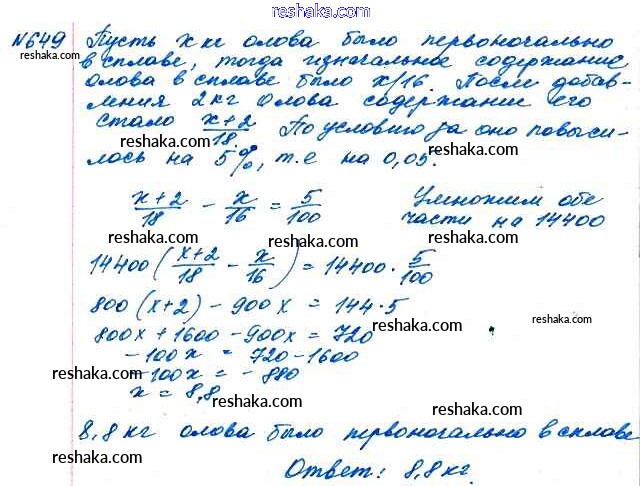 reshaka.com
№649 Пусть x кг олова было первоначально
в сплаве, тогда изначальное содержание
олова в сплаве было x/16. После добав-
reshaka.com reshaka.com
ления 2 кг олова содержание его
стало x+2/18. По условию за оно повыси-
лось на 5%, т.е на 0,05.
reshaka.com reshaka.com
x+2/18 - x/16 = 5/100 Умножим обе
части на 14400
reshaka.com reshaka.com
14400(x+2/18 - x/16) = 14400·5/100
reshaka.com
800(x+2) - 900x = 144·5
reshaka.com
800x + 1600 - 900x = 720
reshaka.com
-100x = 720-1600
reshaka.com
-100x = -880
x = 8,8
reshaka.com
8,8 кг олова было первоначально в сплаве
reshaka.com
Ответ: 8,8 кг.
reshaka.com